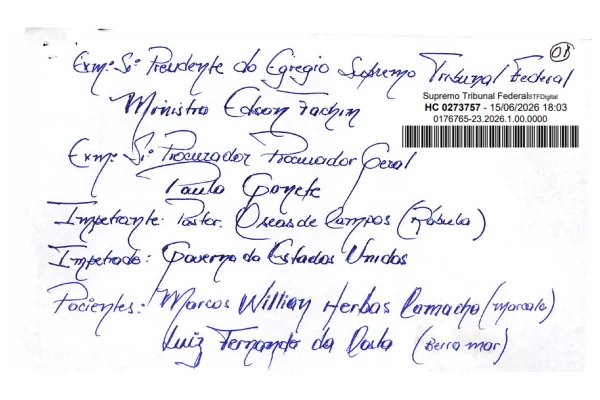 01
Exmº Srº Presidente do Egrégio Supremo Tribunal Federal
Supremo Tribunal FederalSTFDigital
Ministro Edson Fachin
HC 0273757 - 15/06/2026 18:03
0176765-23.2026.1.00.0000
Exmº Srº Procurador Procurador Geral
Paulo Gonete
Impetrante: Pastor. Oseas de Campos (Rábula)
Impetrado: Governo do Estados Unidos
Pacientes: Marcos Willian Herbas Camacho (marcola)
Luiz Fernando da Costa (Beira mar)